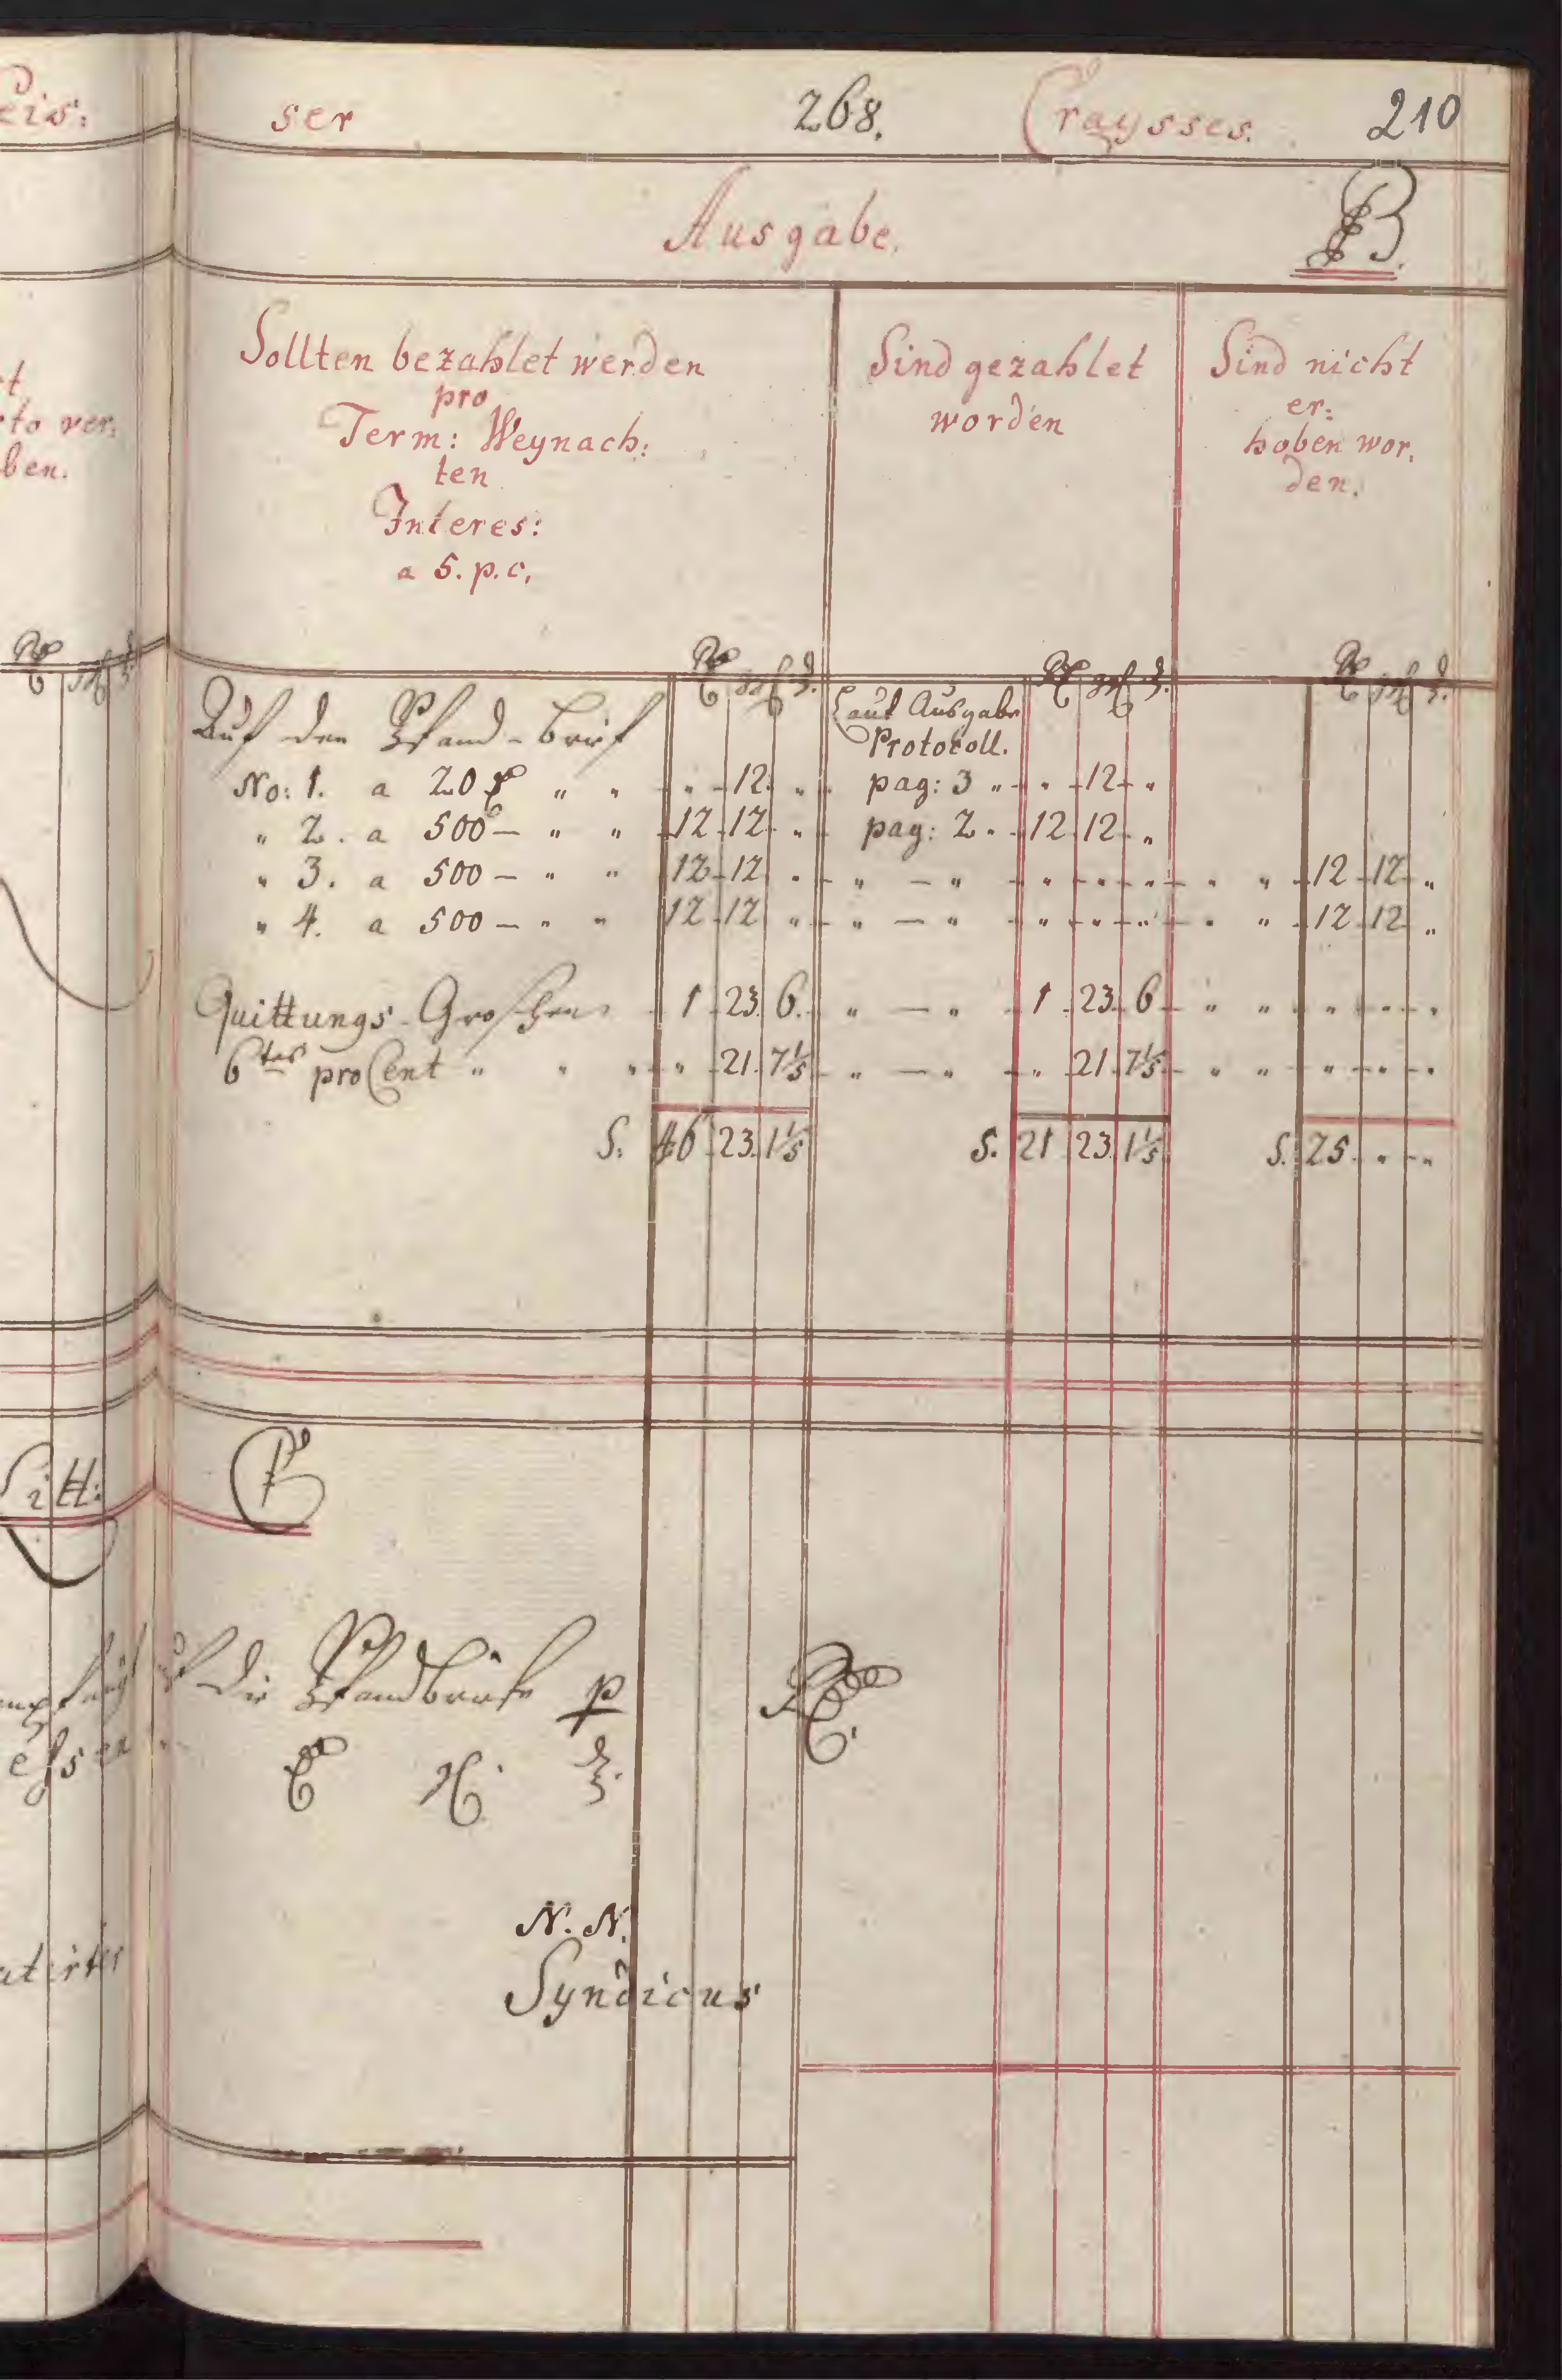 eis:
ser 268. Craysses. 210
Ausgabe. B.
Sollten bezahlet werden
pro
Term: Weynach:
ten
Interes:
a 5. p. c.
Sind gezahlet
worden
Sind nicht
er:
hoben wor.
den.
to ver:
ben.
Auf den Pfand-brief
Laut Ausgabe
Protocoll.
No: 1. a 20 " " " 12. " pag: 3 " " 12 "
" 2. a 500 — " " 12 12 " pag: 2 " 12 12 "
" 3. a 500 — " " 12 12 " " — " " " " " " 12 12 "
" 4. a 500 — " " 12 12 " " — " " " " " " 12 12 "
Quittungs-Groschen 1 23. 6. " — " 1 23. 6 " " " " "
6tes pro Cent " " " " 21. 7 1/5 " — " " 21. 7 1/5 " " " " "
S. 46 23. 1 1/5 S. 21 23. 1 1/5 S. 25. " "
Litt: B
die Pfandbriefe p
N. N.
Syndicus